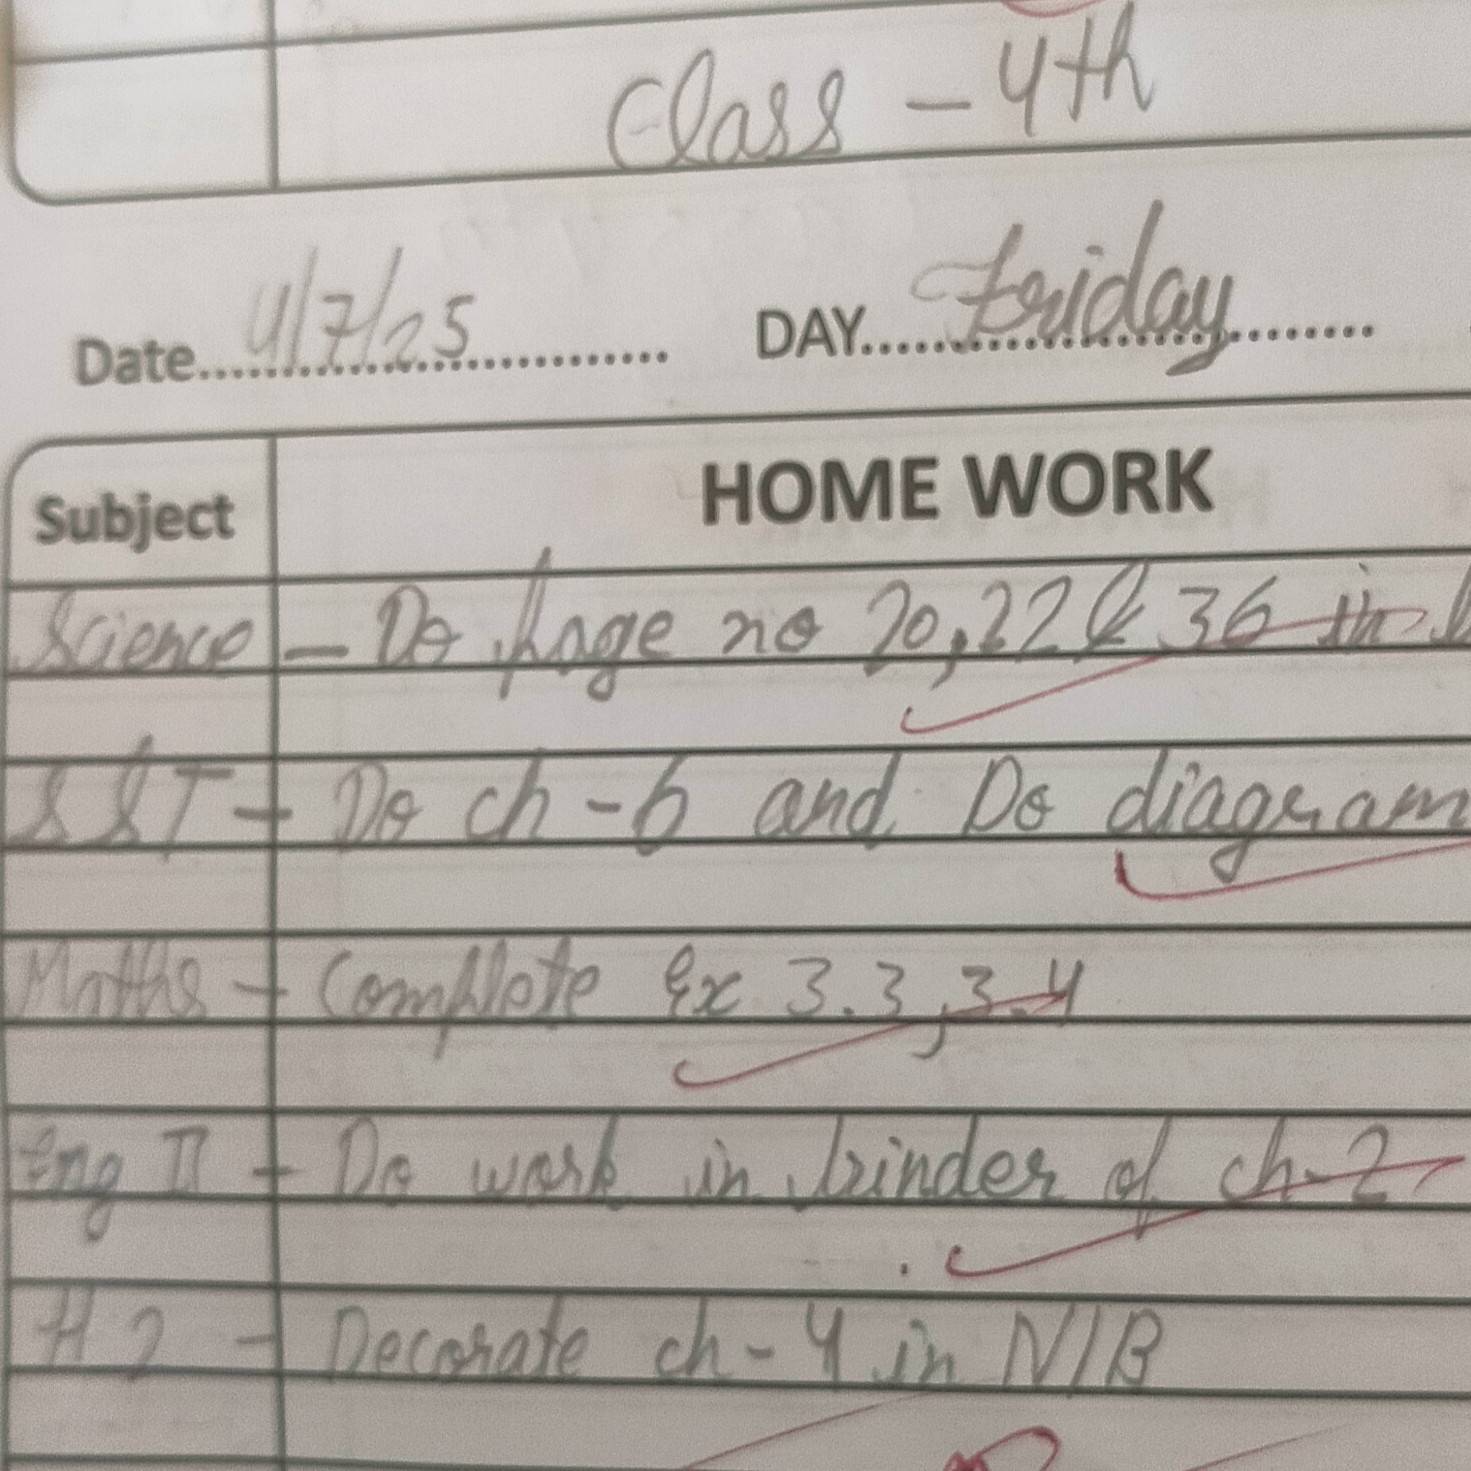 Class - 4th
Date 4/7/25 DAY Friday
Subject HOME WORK
Science - Do page no 20, 22 & 36 in
SST - Do ch-6 and Do diagram
Maths - Complete Ex 3.3, 3.4
Eng II - Do work in binder of ch-2
H2 - Decorate ch-4 in N/B